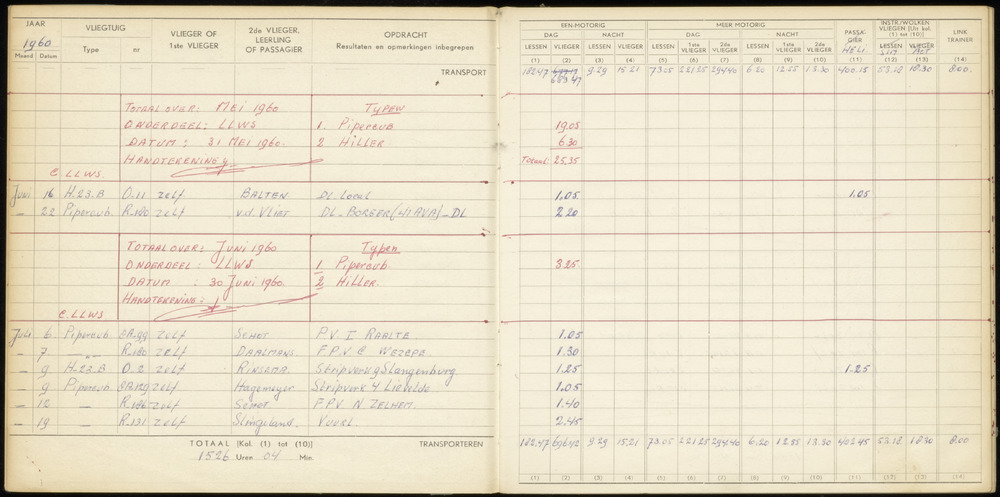 JAAR
1960
Maand Datum
VLIEGTUIG
Type nr
VLIEGER OF
1ste VLIEGER
2de VLIEGER.
LEERLING
OF PASSAGIER
OPDRACHT
Resultaten en opmerkingen inbegrepen
TRANSPORT
TOTAAL OVER: MEI 1960 Typen
ONDERDEEL: LLWS 1. Pipercub
DATUM: 31 MEI 1960. 2 HILLER
HANDTEKENING
C. LLWS.
Juni 16 H.23.B O.11 zelf BALTEN DL Local
— 22 Pipercub. R.180 zelf v.d. Vliet DL - BORGER (41 AVA) - DL
TOTAAL OVER: Juni 1960 Typen
ONDERDEEL: LLWS 1 Pipercub.
DATUM: 30 Juni 1960. 2 HILLER.
HANDTEKENING:
C. LLWS
Juli 6 Pipercub. zelf Schot P.V. I RAALTE
— 7 — R.180 zelf DAALMANS F.P.V. C WEZEPE.
— 9 H-23.B O.2 zelf RINSEMA. Stripverk g Slangenburg
— 9 Pipercub zelf Hagemeyer Stripverk 4 Lievelde
— 12 — zelf Schot. F.P.V. N ZELHEM.
— 19 — R.131 zelf Slingeland.
TOTAAL (Kol. (1) tot (10)) TRANSPORTEREN
1526 Uren 04 Min.
EEN-MOTORIG MEER MOTORIG
DAG NACHT DAG NACHT
LESSEN VLIEGER LESSEN VLIEGER LESSEN 1ste VLIEGER 2de VLIEGER LESSEN 1ste VLIEGER 2de VLIEGER
PASSA-
GIER
HELI
INSTR./WOLKEN
VLIEGEN (Uit kol.
(1) tot (10))
LESSEN VLIEGER
LINK
TRAINER
(1) (2) (3) (4) (5) (6) (7) (8) (9) (10) (11) (12) (13) (14)
182.47 9.29 15.21 73.05 221.25 294.40 6.20 12.55 13.30 400.15 53.18 18.30 8.00
683.47
19.05
6.30
Totaal: 25.35
1.05 1.05
2.20
3.25
1.05
1.30
1.25 1.25
1.05
1.40
2.45
182.47 696.42 9.29 15.21 73.05 221.25 294.40 6.20 12.55 13.30 402.45 53.18 18.30 8.00
(1) (2) (3) (4) (5) (6) (7) (8) (9) (10) (11) (12) (13) (14)